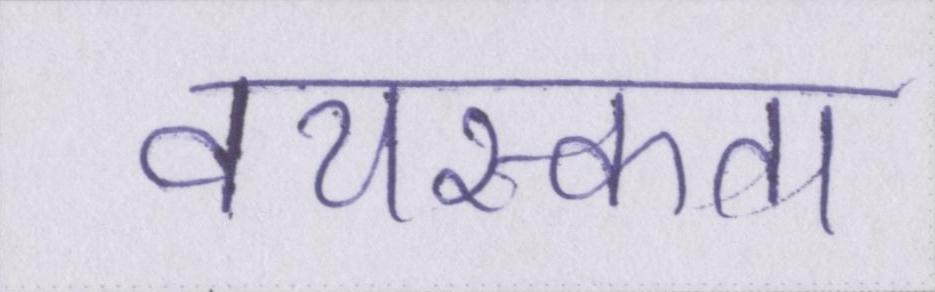 वयस्कता